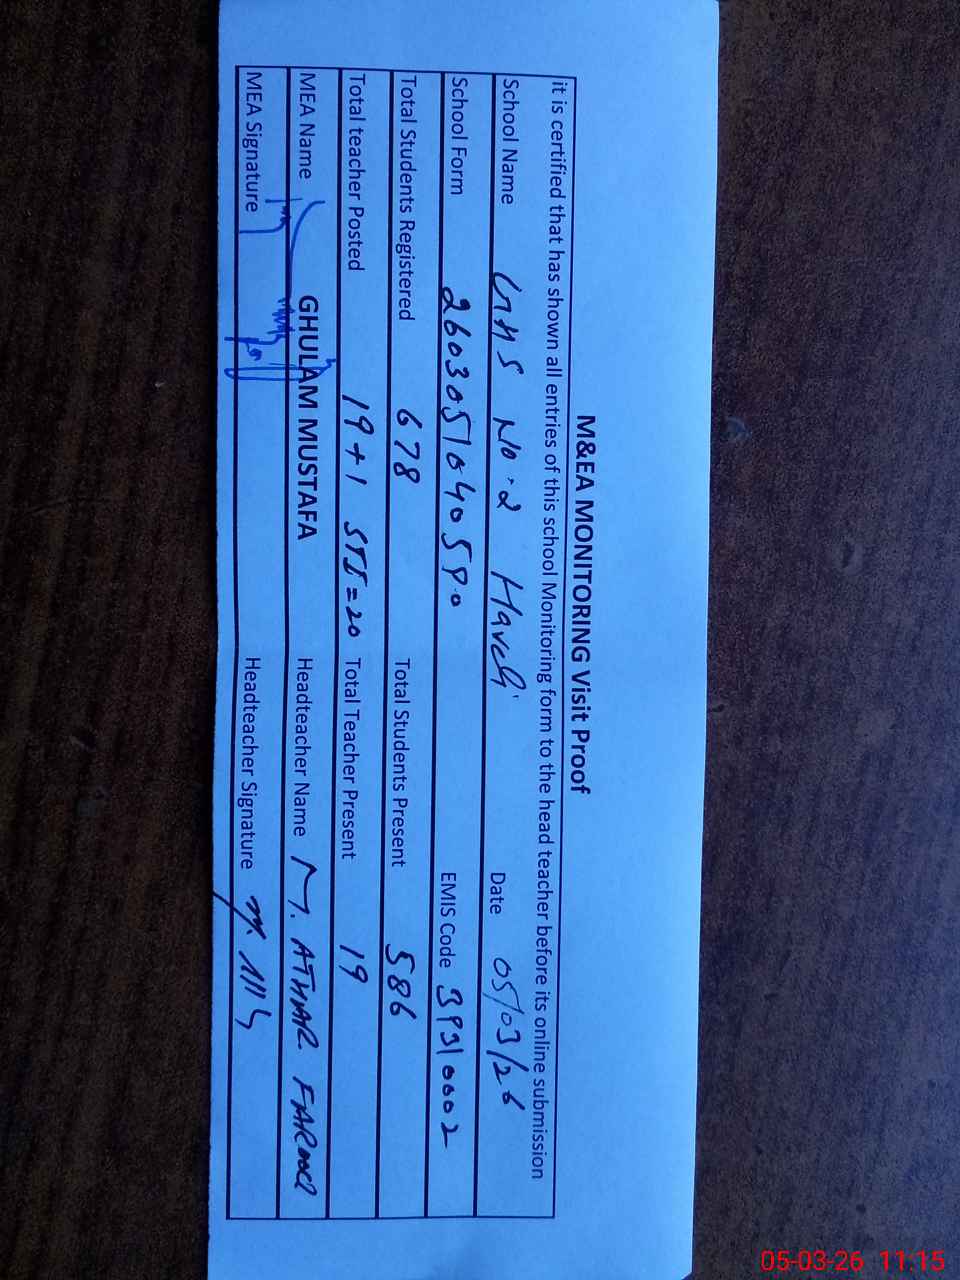 M&EA MONITORING Visit Proof
it is certified that has shown all entries of this school Monitoring form to the head teacher before its online submission
School Name GHS No. 2 Haveli Date 05/03/26
School Form 2603051040590 EMIS Code 39310002
Total Students Registered 678 Total Students Present 586
Total teacher Posted 19+1 STI=20 Total Teacher Present 19
MEA Name GHULAM MUSTAFA Headteacher Name M. ATHAR FAROOQ
MEA Signature Headteacher Signature
05-03-26 11:15